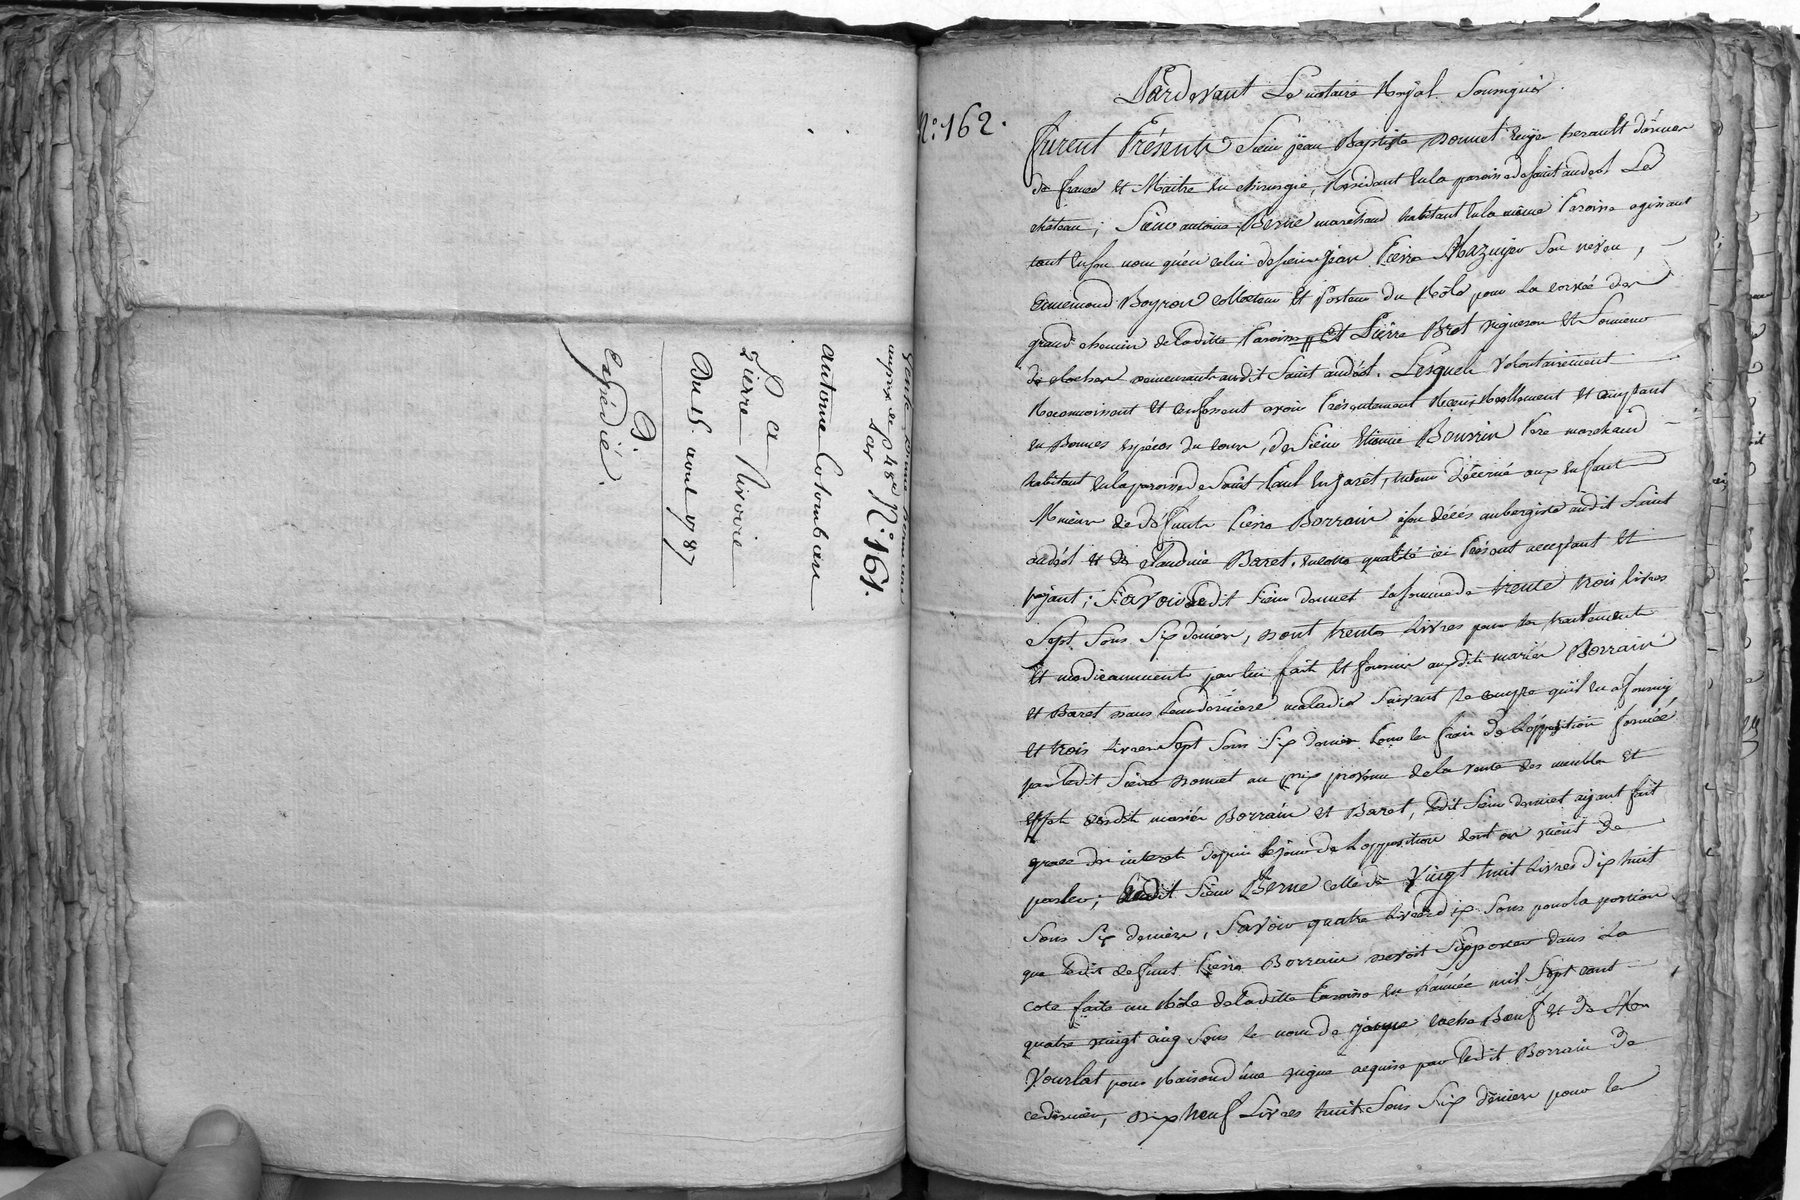 Vente d'une
au prix de 48#
Par
N.° 161.
antoine Colombasse
Pierre Rivoirie
Du 15 avril 1787
Expédié.
N.° 162.
Pardevant Le notaire Royal Soussigné
furent Présents Sieur jean Baptiste Donnet herault d'armes
de france et Maitre en chirurgie, Residant en la paroisse de saint andeol Le
château; Sieur antoine Berne marchand habitant en la même Paroisse agissant
tant en son nom qu'en celui de sieur jean Pierre Mazuyer son neveu,
Ennemond Boyron collecteur et Porteur du Rôle pour la corvée des
grands chemins de laditte Paroisse, Et Pierre Brot vigneron et Sonneur
de cloches demeurants audit Saint andeol. Lesquels volontairement
Reconnoissent et confessent avoir Présentement Reçeu Réellement et comptant
en Bonnes espéces du cours, de Sieur Etienne Bourrin Pere marchand
habitant en la paroisse de Saint Paul en jarêt, tuteur décerné aux enfants
Mineurs de défunts Pierre Borrain à son décés aubergiste audit Saint
andéol et de claudine Baret, en cette qualité ici Présent acceptant et
payant; Savoir ledit Sieur donnet la somme de trente trois livres
Sept Sous Six deniers, dont trente Livres pour les traitements
et medicamments par lui faits et fournis auxdits mariés Borrain
et Baret dans leur derniere maladie suivant le compte qu'il en a fourny
et trois Livres Sept Sous Six deniers pour les frais de l'opposition formée
par ledit Sieur Donnet au prix provenu de la vente des meubles et
effets desdits mariés Borrain et Baret, ledit Sieur donnet ayant fait
grace des interets depuis le jour de l'opposition dont on vient de
parler; ledit Sieur Berne celle de Vingt huit Livres dix huit
Sous Six deniers, Savoir quatre Livres dix Sous pour la portion
que ledit defunt Pierre Borrain devoit Supporter dans La
cote faite au Rôle de laditte Paroisse en l'année mil Sept cent
quatre vingt cinq Sous le nom de jacques Bœuf et de
Vourlat pour Raison d'une vigne acquise par ledit Borrain de
ce dernier, dix neuf Livres huit Sous Six deniers pour les